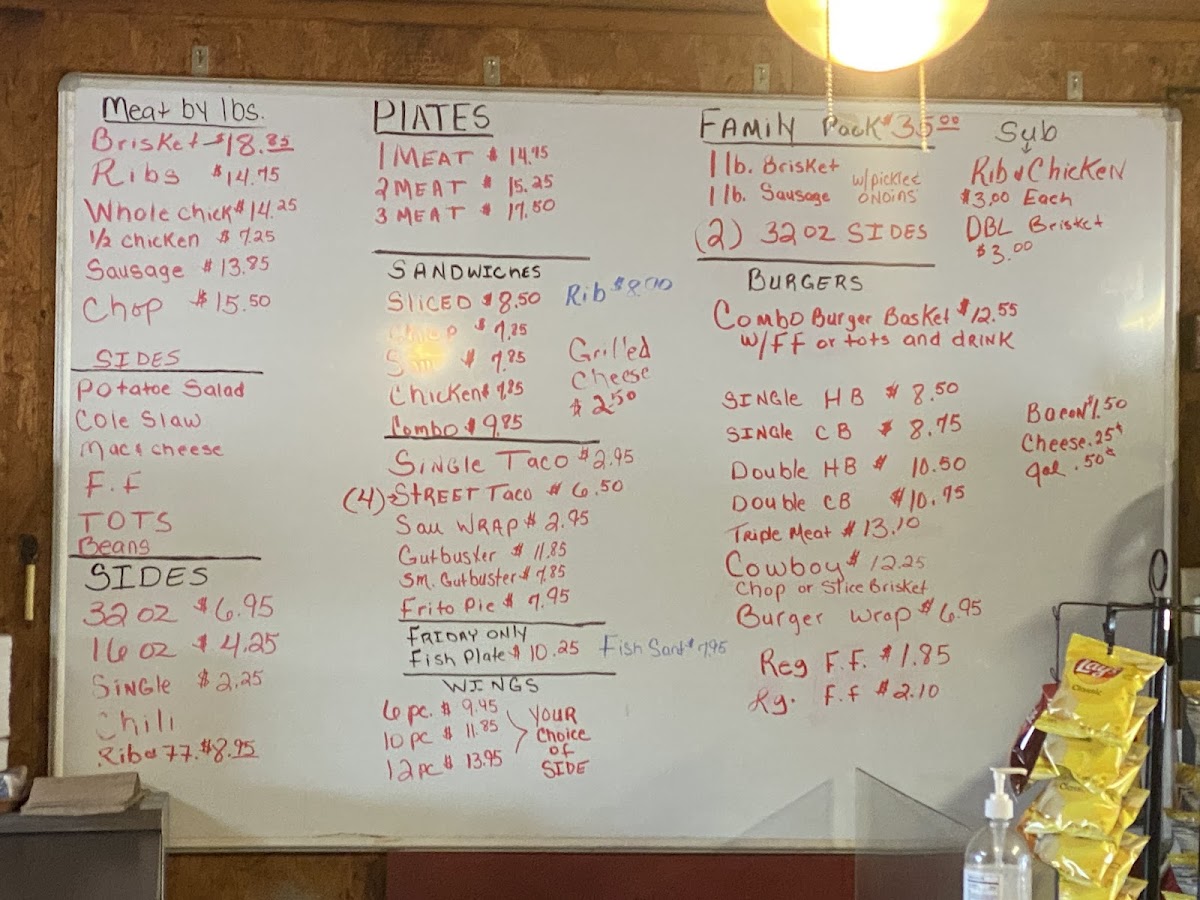 Meat by lbs.
Brisket $18.85
Ribs $14.75
Whole chick $14.25
1/2 chicken $7.25
Sausage $13.85
Chop $15.50
SIDES
Potatoe Salad
Cole Slaw
Mac & cheese
F.F
TOTS
Beans
SIDES
32 oz $6.95
16 oz $4.25
SINGLE $2.25
Chili
PLATES
1 MEAT $14.75
2 MEAT $15.25
3 MEAT $17.50
SANDWICHES
SLICED $8.50
Rib
Chop $7.85
$7.85
Chicken $7.85
Combo $9.85
Grilled
Cheese
$2.50
SINGLE TACO $2.95
(4) STREET Taco $6.50
Sau WRAP $2.95
Gutbuster $11.85
Sm. Gutbuster $7.85
Frito Pie $7.95
FRIDAY ONLY
Fish Plate $10.25
Fish Sand $7.95
WINGS
6 pc. $9.45
10 pc $11.85
12 pc $13.95
YOUR
Choice
of
SIDE
FAMILY Pack $35.00
1 lb. Brisket
1 lb. Sausage
w/pickles
ONOINS
(2) 32 oz SIDES
Sub
Rib & Chicken
$3.00 Each
DBL Brisket
$3.00
BURGERS
Combo Burger Basket $12.55
W/FF or tots and DRINK
SINGLE HB $8.50
SINGLE CB $8.75
Double HB $10.50
Double CB $10.75
Triple Meat $13.10
Cowboy $12.25
Chop or Slice Brisket
Burger Wrap $6.95
Reg F.F. $1.85
Lg. F.F $2.10
Bacon $1.50
Cheese .25¢
Jal .50¢
Lay's
Classic